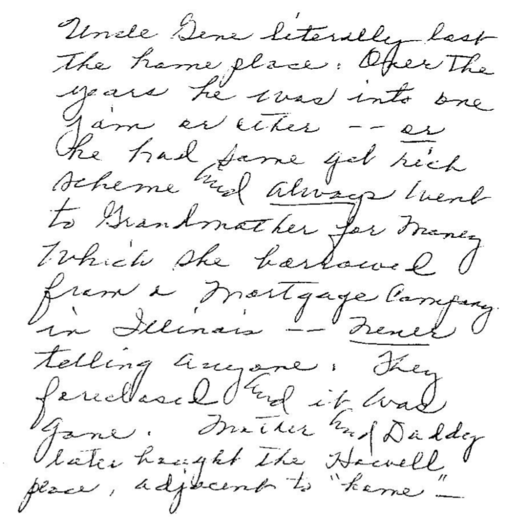 Uncle Gene literally lost
the home place. Over the
years he was into one
jam or other -- or
he had some get rich
scheme and always went
to Grandmother for money
which she borrowed
from a Mortgage Company
in Illinois -- never
telling anyone. They
foreclosed and it was
gone. Mother and Daddy
later bought the Howell
place, adjacent to "home" —